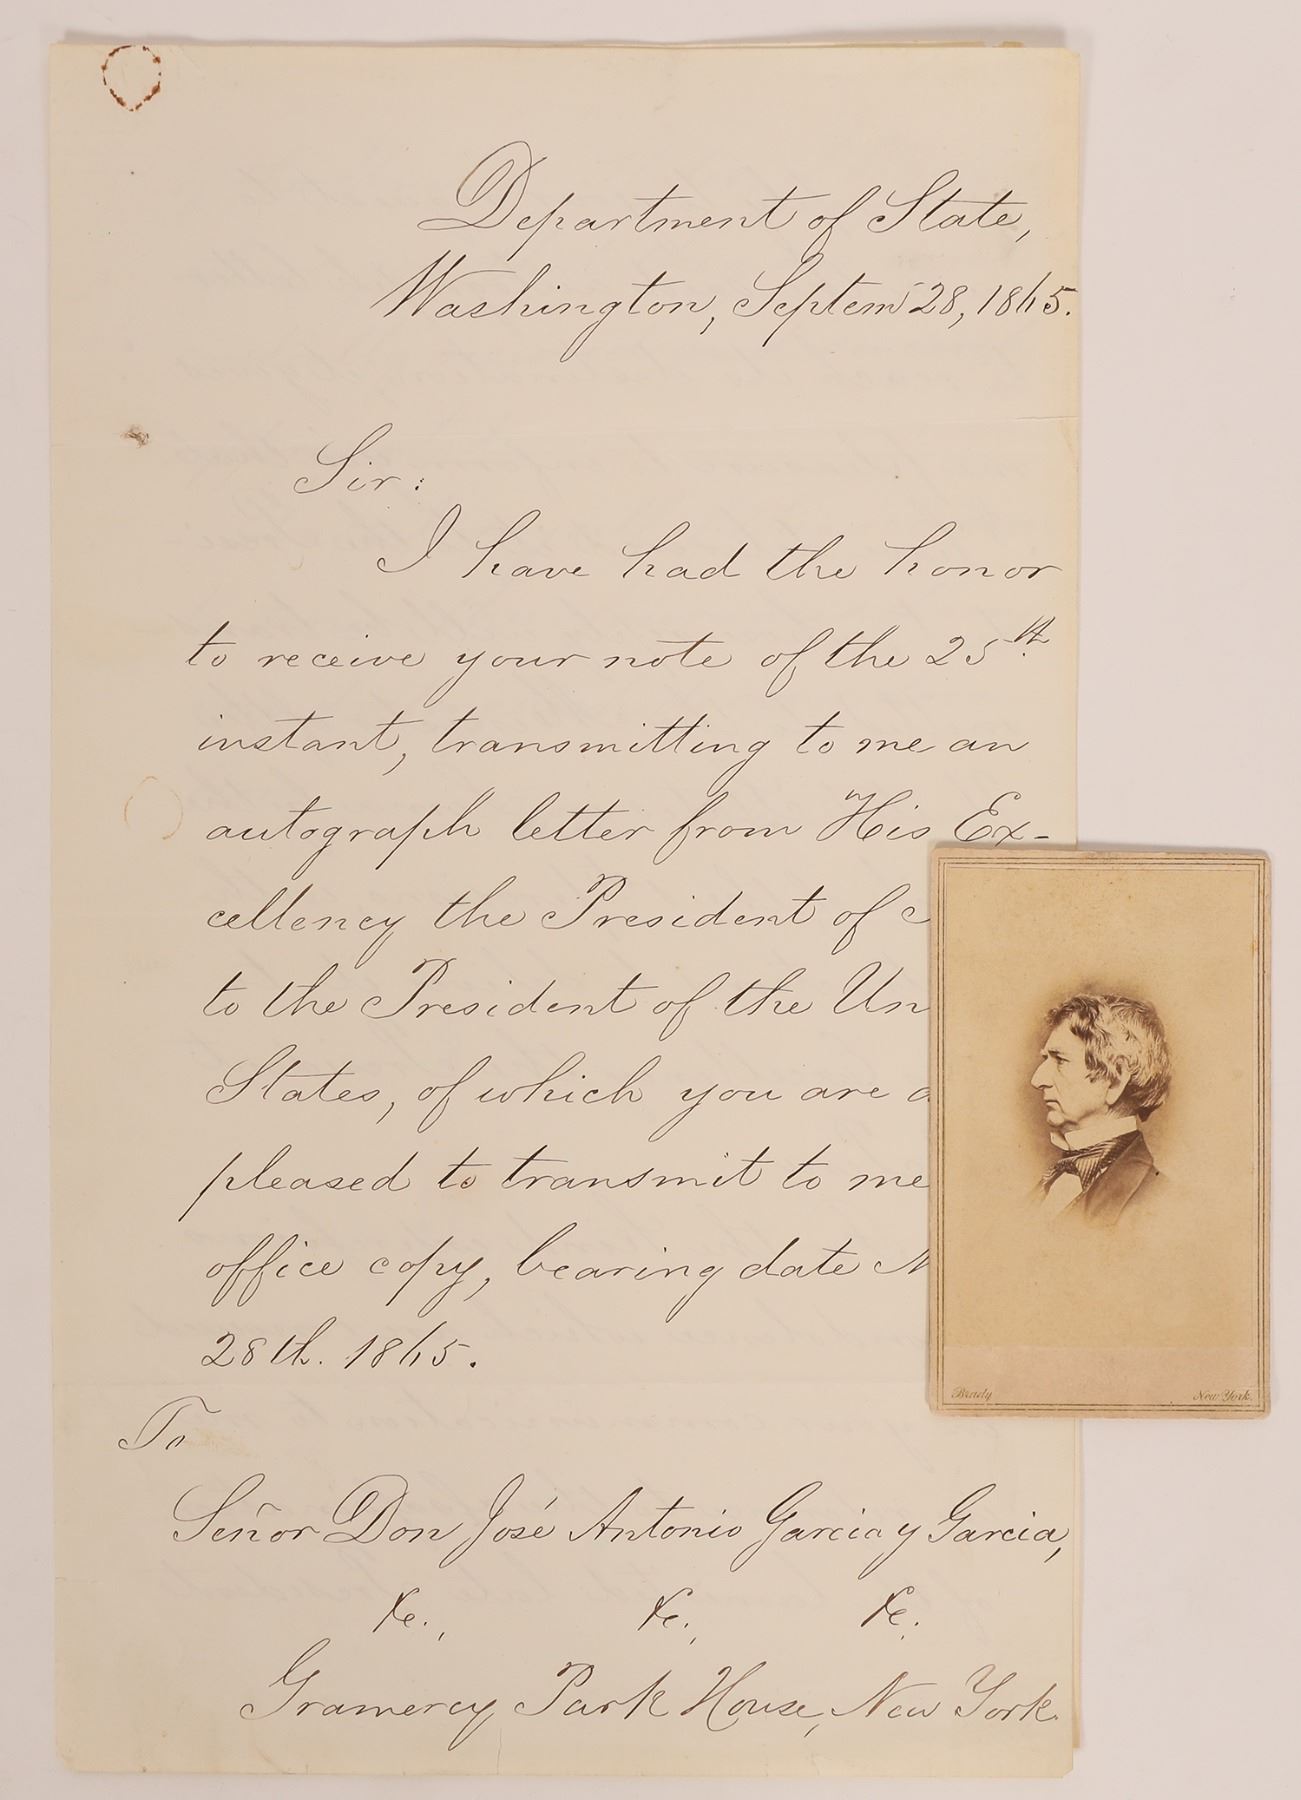 Department of State,
Washington, Septemr 28, 1865.
Sir:
I have had the honor
to receive your note of the 25th.
instant, transmitting to me an
autograph letter from His Ex-
cellency the President of
to the President of the Un
States, of which you are
pleased to transmit to me
office copy, bearing date
28th. 1865.
To
Señor Don José Antonio Garcia y Garcia,
&c., &c., &c.
Gramercy Park House, New York.
Brady New York.